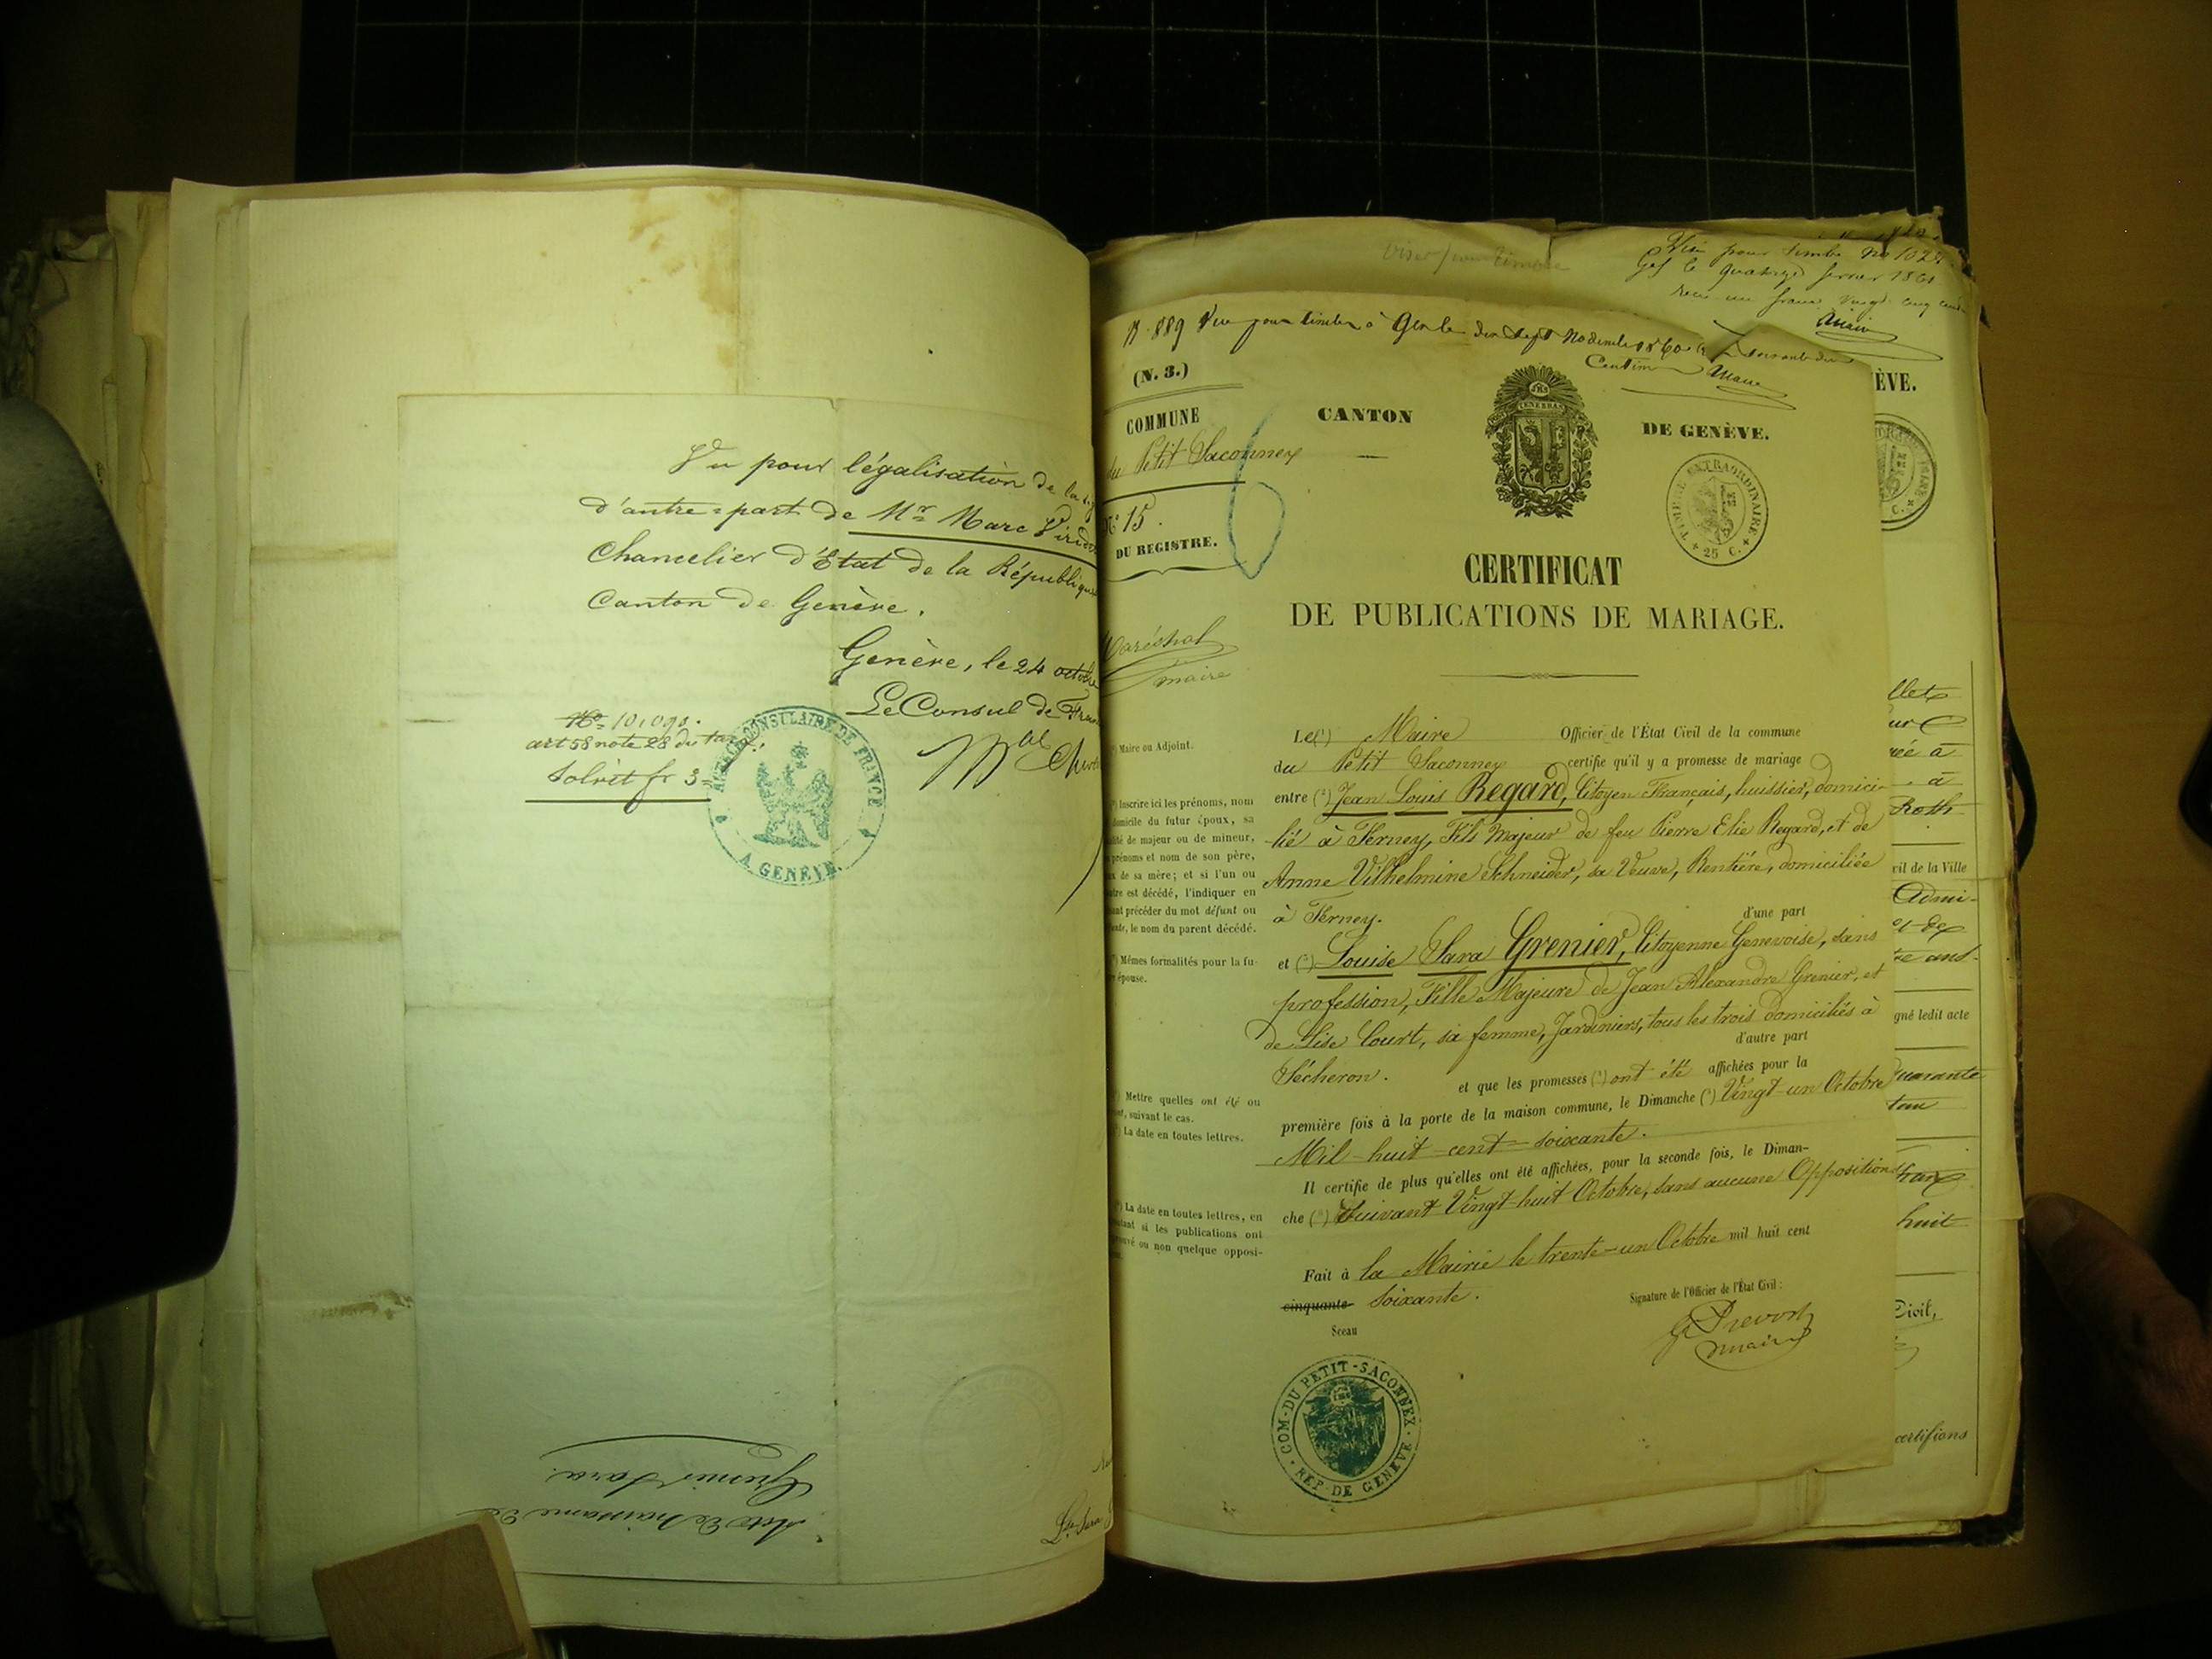 Vu pour légalisation de la
d'autre-part de Mr Marc
Chancelier d'Etat de la République
Canton de Genève.
Genève, le 24 octobre
Le Consul de
No 10,098.
art 58 note 28 du
Solvit fr 3
AGENCE CONSULAIRE DE FRANCE
A GENÈVE.
Acte de Naissance de
Grenier Sara.
Viser pour timbre
Visé pour timbre No
Gex le quatorze fevrier 1861
reçu un franc vingt cinq
N. 889 Vu pour timbre à Gex le sept Novembre 1860
Centimes
(N. 3.)
COMMUNE
du Petit Saconnex
No 15.
DU REGISTRE.
CANTON
DE GENÈVE.
TIMBRE EXTRAORDINAIRE
25 C.
CERTIFICAT
DE PUBLICATIONS DE MARIAGE.
Maréchal
maire
Le (1) Maire Officier de l'État Civil de la commune
du Petit Saconnex certifie qu'il y a promesse de mariage
entre (2) Jean Louis Regard, Citoyen Français, huissier, domici-
lié à Ferney, Fils Majeur de feu Pierre Elie Regard, et de
Anne Vilhelmine Schneider, sa Veuve, Rentière, domiciliée
à Ferney. d'une part
et (3) Louise Sara Grenier, Citoyenne Genevoise, sans
profession, Fille Majeure de Jean Alexandre Grenier, et
de Lise Court, sa femme, Jardiniers, tous les trois domiciliés à
d'autre part
Sécheron. et que les promesses (4) ont été affichées pour la
première fois à la porte de la maison commune, le Dimanche (5) Vingt-un Octobre
Mil-huit-cent-soixante.
Il certifie de plus qu'elles ont été affichées, pour la seconde fois, le Diman-
che (6) Suivant Vingt-huit Octobre, sans aucune Opposition
Fait à la Mairie le trente-un Octobre mil huit cent
cinquante soixante.
Signature de l'Officier de l'État Civil :
G Prevost
maire
Sceau
COM. DU PETIT-SACONNEX
REP. DE GENÈVE
Maire ou Adjoint.
Inscrire ici les prénoms, nom
domicile du futur époux, sa
de majeur ou de mineur,
prénoms et nom de son père,
de sa mère; et si l'un ou
est décédé, l'indiquer en
précéder du mot défunt ou
le nom du parent décédé.
Mêmes formalités pour la fu-
épouse.
Mettre quelles ont été ou
suivant le cas.
La date en toutes lettres.
La date en toutes lettres, en
si les publications ont
ou non quelque opposi-
ÈVE.
née à
à
Roth
de la Ville
Admi-
et de
gné ledit acte
quarante
huit
Civil,
certifions